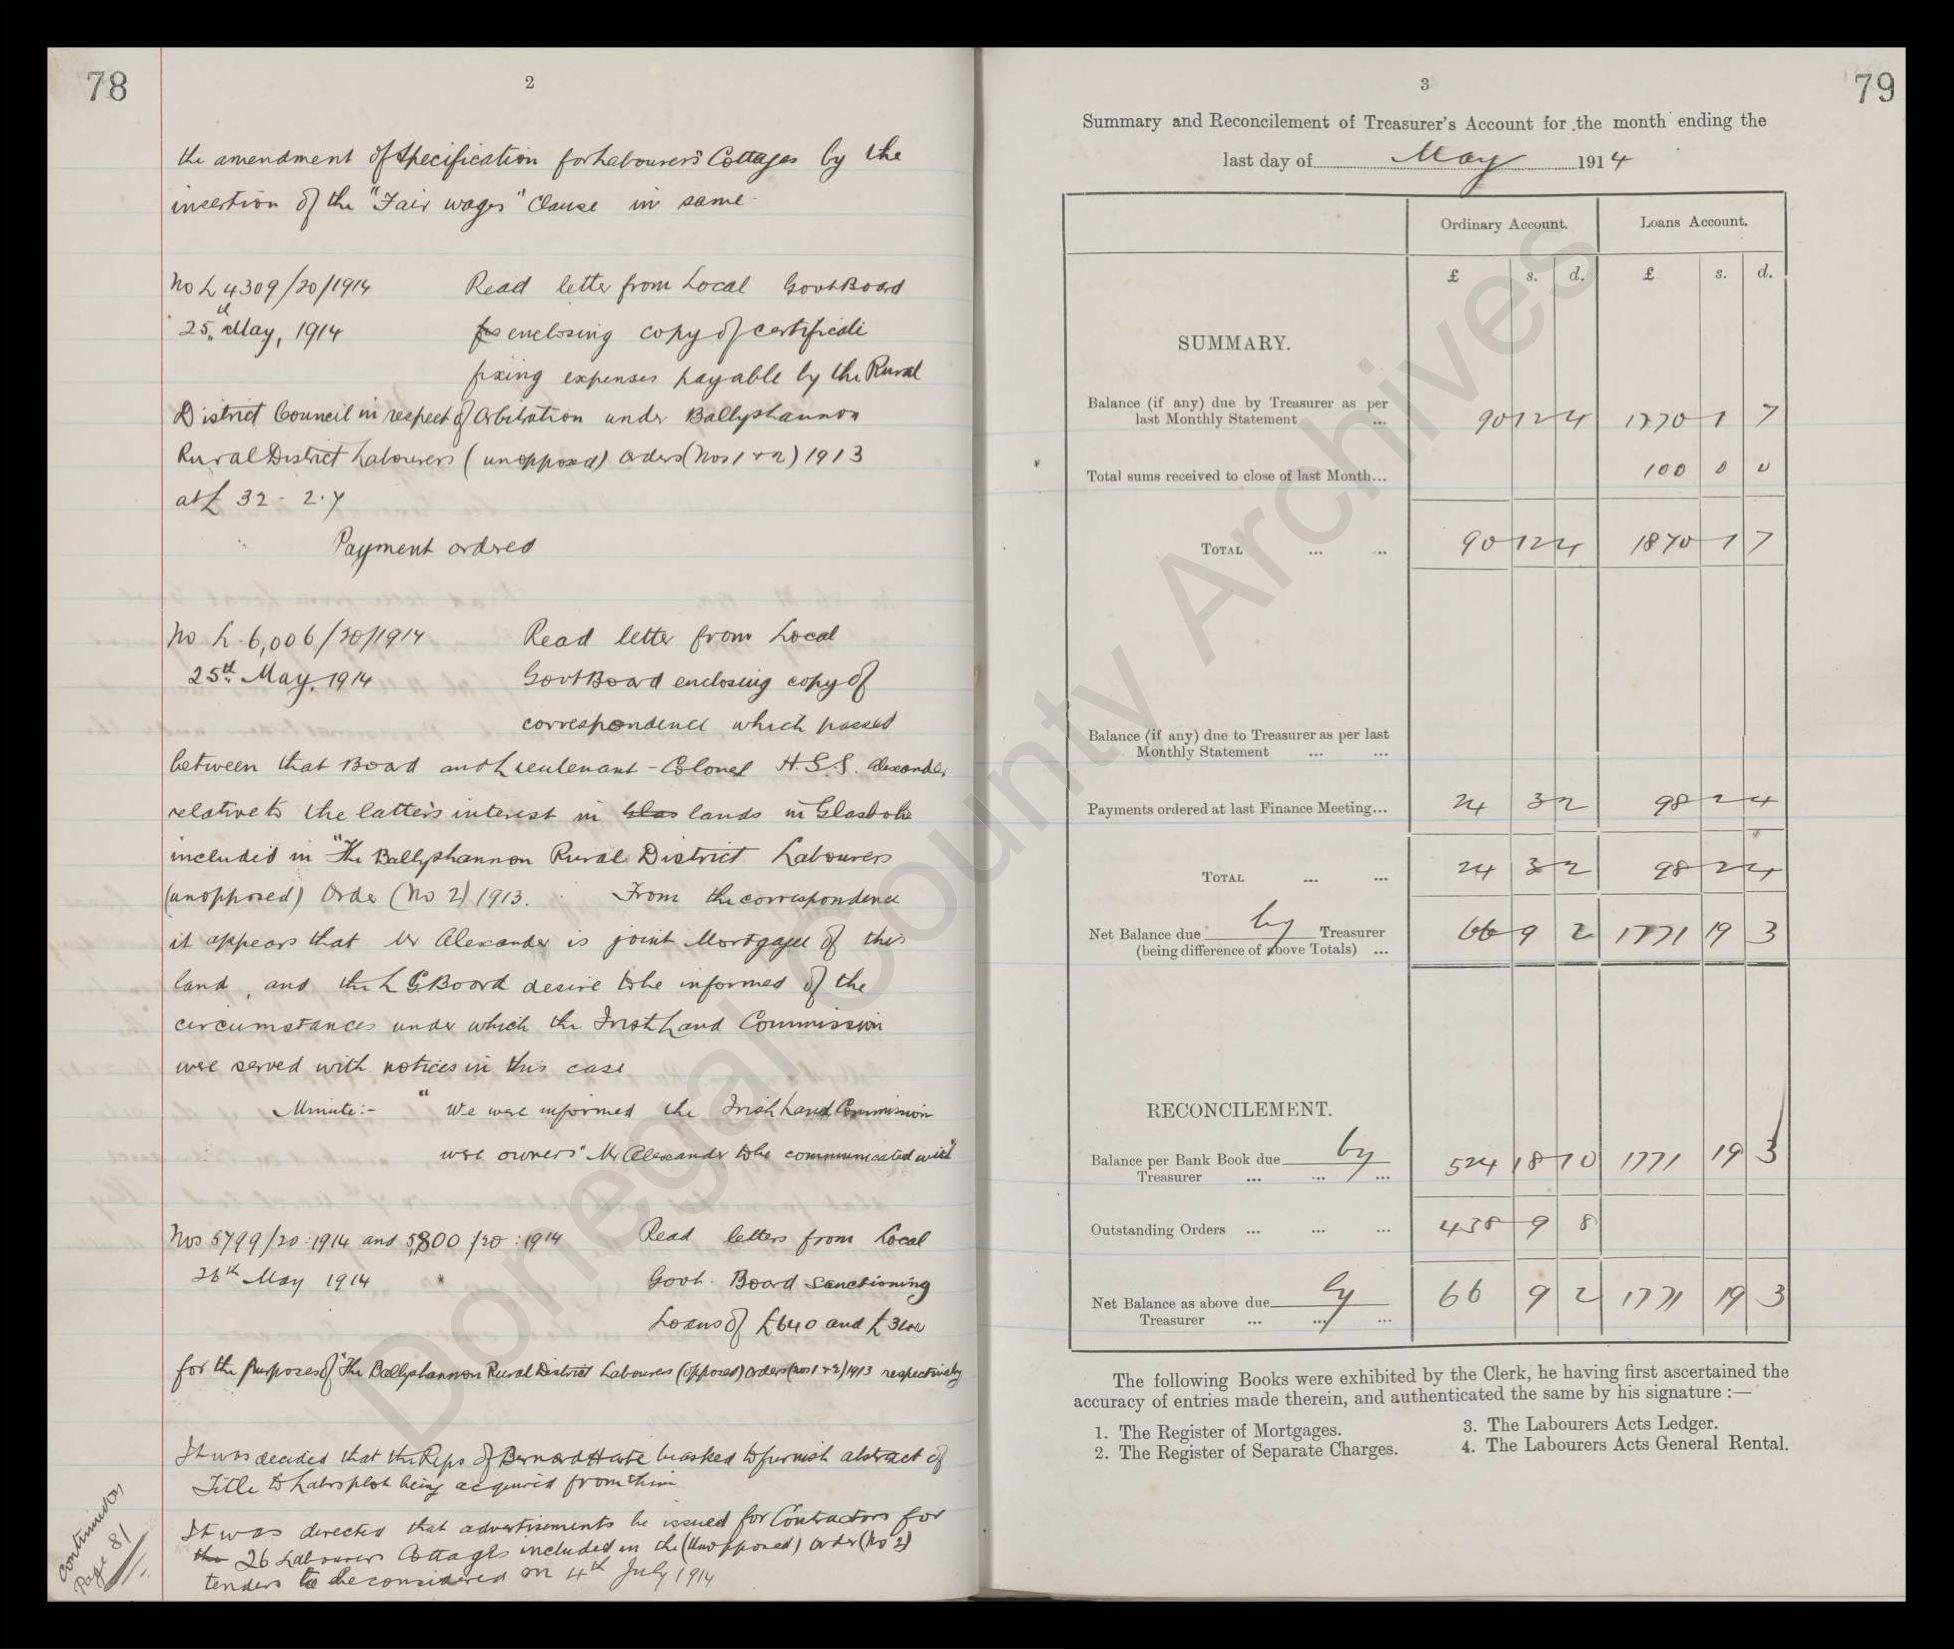 78
2
the amendment of Specification for Labourers Cottages by the
insertion of the "Fair wages" Clause in same.
No L 4309/20/1914 Read letter from Local Govt Board
25th May, 1914 enclosing copy of certificate
fixing expenses payable by the Rural
District Council in respect of Arbitration under Ballyshannon
Rural District Labourers (unopposed) Orders (Nos 1 & 2) 1913
at £ 32 - 2 . 7
Payment ordered
No L 6,006/20/1914 Read letter from Local
25th May, 1914 Govt Board enclosing copy of
correspondence which passed
between that Board and Lieutenant-Colonel H.S.S. Alexander
relative to the latter's interest in Glas lands in Glasbole
included in "The Ballyshannon Rural District Labourers
(unopposed) Order (No 2) 1913. From the correspondence
it appears that Mr Alexander is joint Mortgagee of this
land, and the L G Board desire to be informed of the
circumstances under which the Irish Land Commission
were served with notices in this case
Minute:- "We were informed the Irish Land Commission
were owners" Mr Alexander to be communicated with
Nos 5799/20:1914 and 5,800/20:1914 Read letters from Local
26th May 1914 Govt. Board sanctioning
Loans of £640 and £
for the purposes of "The Ballyshannon Rural District Labourers (opposed) Orders (nos 1 & 2) 1913 respectively
It was decided that the Reps of Bernard be asked to furnish abstract of
Title to Labrs plot being acquired from him
It was directed that advertisements be issued for Contractors for
the 26 Labourers Cottages included in the (Unopposed) Order (No 2)
tenders to be considered on 4th July 1914
Continued on
Page 81
79
3
Summary and Reconcilement of Treasurer's Account for the month ending the
last day of May 1914
Ordinary Account. Loans Account.
£ s. d. £ s. d.
SUMMARY.
Balance (if any) due by Treasurer as per
last Monthly Statement ... 90 12 4 1770 1 7
Total sums received to close of last Month... 100 0 0
TOTAL ... ... 90 12 4 1870 1 7
Balance (if any) due to Treasurer as per last
Monthly Statement ... ...
Payments ordered at last Finance Meeting... 24 3 2 98 2 4
TOTAL ... ... 24 3 2 98 2 4
Net Balance due by Treasurer
(being difference of above Totals) ... 66 9 2 1771 19 3
RECONCILEMENT.
Balance per Bank Book due by
Treasurer ... ... ... 524 18 10 1771 19 3
Outstanding Orders ... ... ... 438 9 8
Net Balance as above due by
Treasurer ... ... ... 66 9 2 1771 19 3
The following Books were exhibited by the Clerk, he having first ascertained the
accuracy of entries made therein, and authenticated the same by his signature :—
1. The Register of Mortgages. 3. The Labourers Acts Ledger.
2. The Register of Separate Charges. 4. The Labourers Acts General Rental.
Donegal County Archives